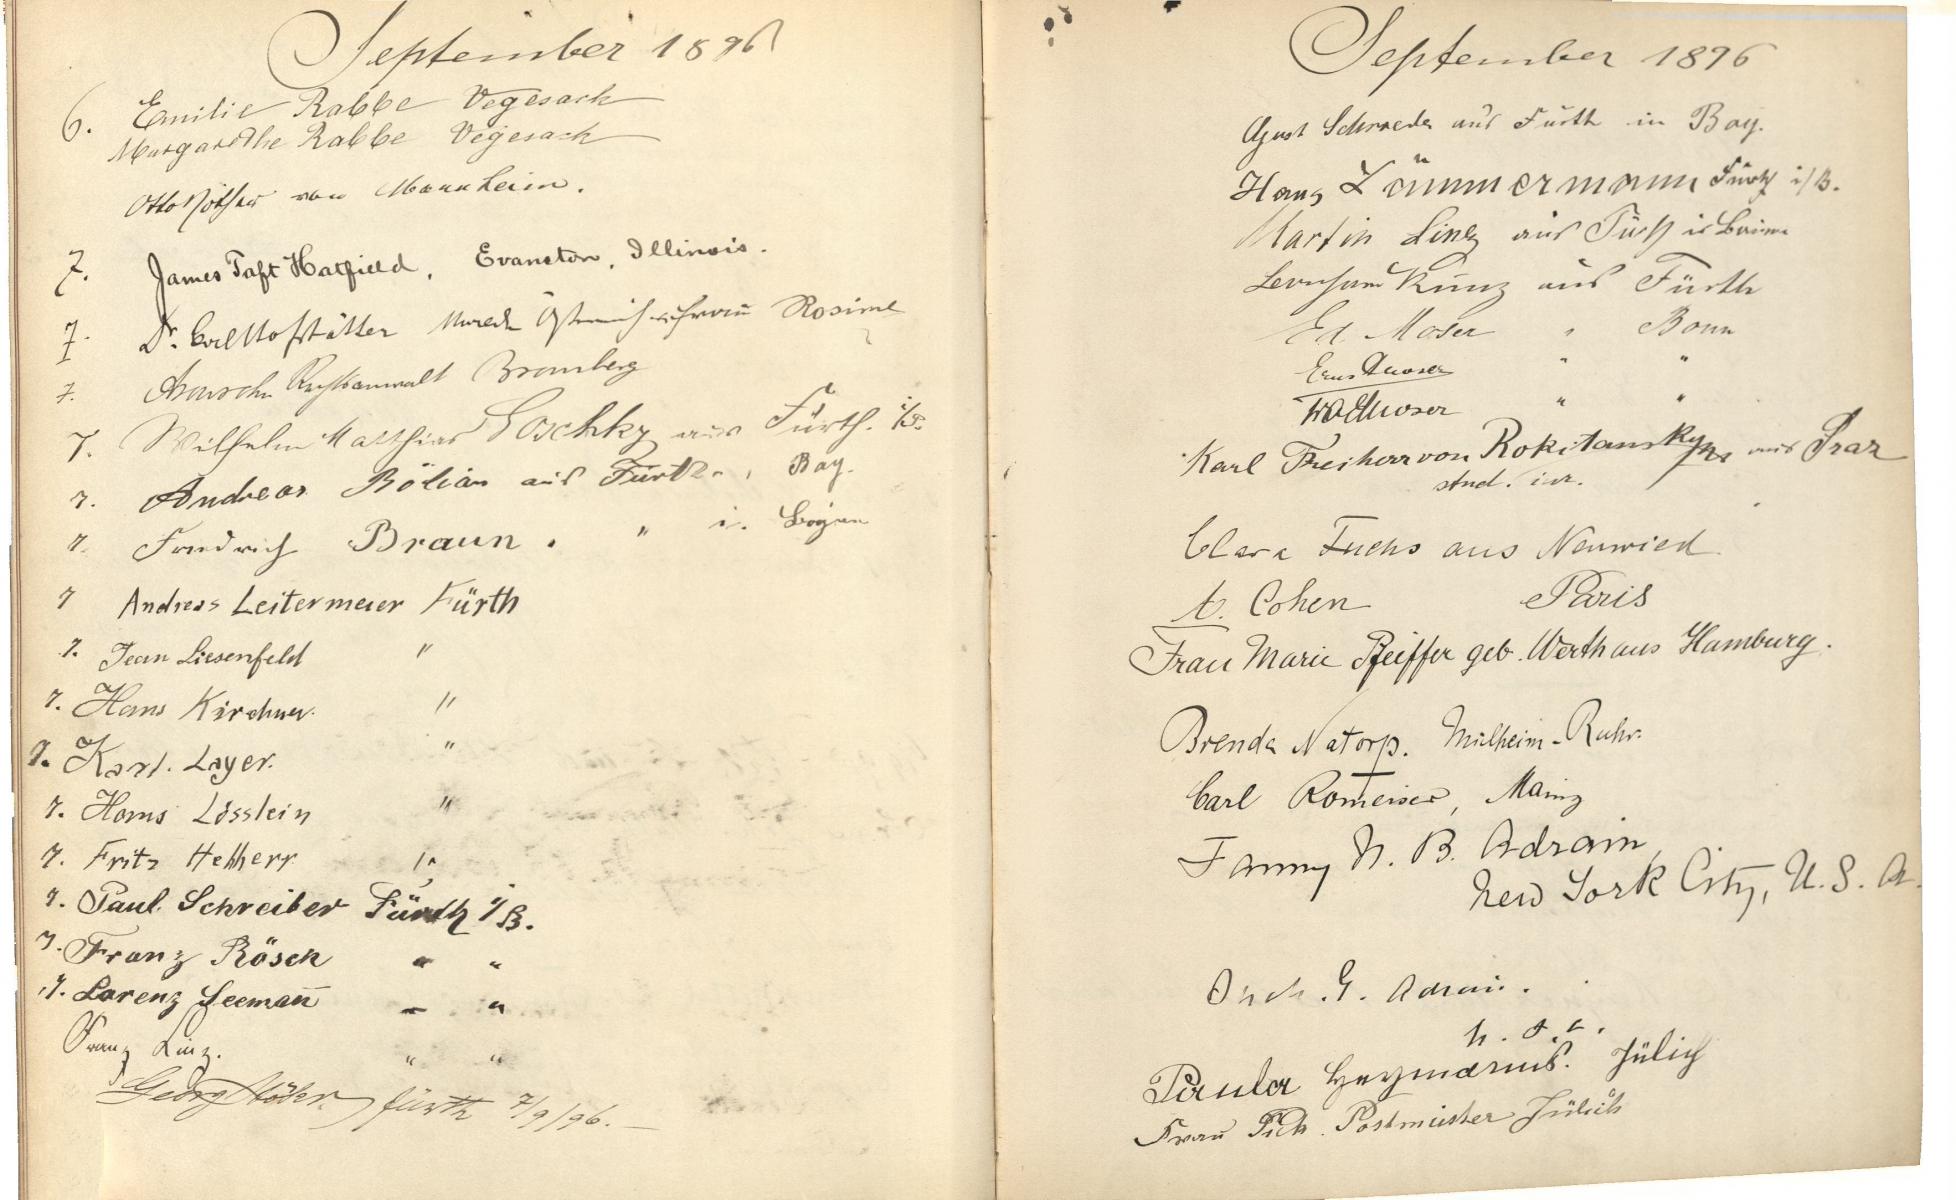 September 1896
6. Emilie Rabbe Vegesack
Margarethe Rabbe Vegesack
Otto von Mannheim.
7. James Taft Hatfield, Evanston, Illinois.
7. Dr. Rosine
7. Rechtsanwalt Bromberg
7. Wilhelm Matthias Goschky aus Fürth. i/B.
7. Andreas aus Fürth, Bay.
7. Friedrich Braun. " i. Bayern
7 Andreas Leitermeier Fürth
7. Jean Liesenfeld "
7. Hans Kirchner. "
7. Karl. Layer. "
7. Hans Lösslein "
7. Fritz "
7. Paul Schreiber Fürth i/B.
7. Franz Rösch " "
7. Lorenz Seemañ " "
Franz Linz. " "
Georg Fürth 7/9/96.
September 1896
Schroeder aus Fürth in Bay.
Hans Lämmermann Fürth i/B.
Martin Linz aus Fürth in
Kunz aus Fürth
Ed. Moser " Bonn
Ernst Moser " "
Moser " "
Karl Freiherr von Rokitansky aus Graz
stud. iur.
Clara Fuchs aus Neuwied
A. Cohen Paris
Frau Marie Pfeiffer geb. Werth aus Hamburg.
Brenda Natorp. Mülheim-Ruhr.
Carl Romeiser, Mainz
Fanny N. B. Adrain,
New York City, U. S. A.
G. Adrain.
Paula Heymanns. Jülich
Frau Postmeister Jülich